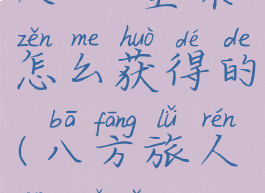 zěn me huò dé de
怎么获得的
bā fāng lǚ rén
(八方旅人